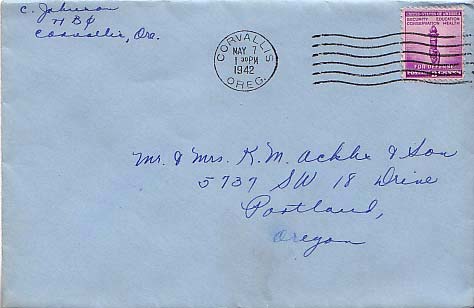 C. Johnson
Corvallis, Ore.
CORVALLIS
MAY 7
1 30 PM
1942
OREG.
UNITED STATES OF AMERICA
SECURITY EDUCATION
CONSERVATION HEALTH
FOR DEFENSE
Mr. & Mrs. K. M. & Son
5737 SW 18 Drive
Portland,
Oregon